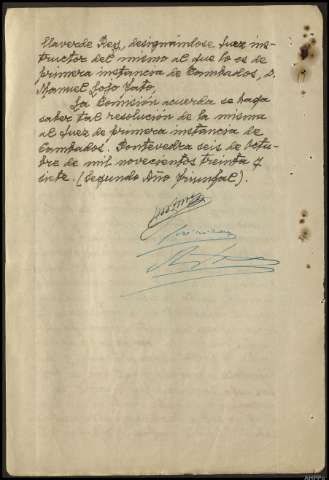 Llaverde Rey, designándose Juez ins-
tructor del mismo al que lo es de
primera instancia de Cambados, D.
Manuel Lojo Tato,
La Comisión acuerda se haga
saber tal resolución de la misma
al Juez de primera instancia de
Cambados. Pontevedra seis de Octu-
bre de mil novecientos treinta y
siete. (Segundo Año Triunfal).